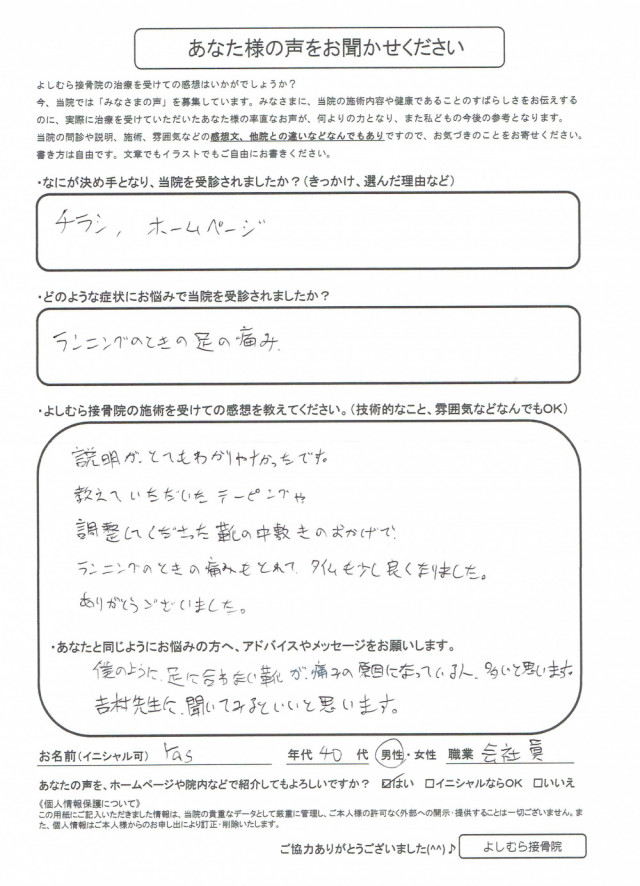 あなた様の声をお聞かせください
よしむら接骨院の治療を受けての感想はいかがでしょうか？
今、当院では「みなさまの声」を募集しています。みなさまに、当院の施術内容や健康であることのすばらしさをお伝えする
のに、実際に治療を受けていただいたあなた様の率直なお声が、何よりの力となり、また私どもの今後の参考となります。
当院の問診や説明、施術、雰囲気などの感想文、他院との違いなどなんでもありですので、お気づきのことをお寄せください。
書き方は自由です。文章でもイラストでもご自由にお書きください。
・なにが決め手となり、当院を受診されましたか？（きっかけ、選んだ理由など）
チラシ, ホームページ
・どのような症状にお悩みで当院を受診されましたか？
ランニングのときの足の痛み.
・よしむら接骨院の施術を受けての感想を教えてください。（技術的なこと、雰囲気などなんでもOK）
説明が、とてもわかりやすかったです。
教えていただいたテーピングや
調整してくださった靴の中敷きのおかげで、
ランニングのときの痛みもとれて、タイムも少し良くなりました。
ありがとうございました。
・あなたと同じようにお悩みの方へ、アドバイスやメッセージをお願いします。
僕のように、足に合わない靴が、痛みの原因になっている人、多いと思います。
吉村先生に、聞いてみるといいと思います。
お名前（イニシャル可） Yas 年代 40 代 男性・女性 職業 会社員
あなたの声を、ホームページや院内などで紹介してもよろしいですか？ ☑はい □イニシャルならOK □いいえ
《個人情報保護について》
この用紙にご記入いただきました情報は、当院の貴重なデータとして厳重に管理し、ご本人様の許可なく外部への開示・提供することは一切ございません。ま
た、個人情報はご本人様からのお申し出により訂正・削除いたします。
ご協力ありがとうございました(^^)♪ よしむら接骨院